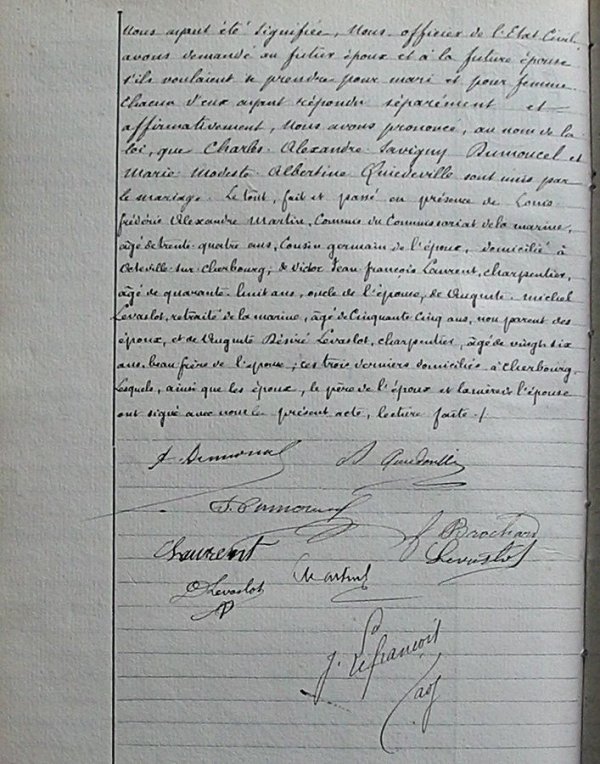 nous ayant été signifiée, Nous officier de l'Etat Civil,
avons demandé au futur époux et à la future épouse
s'ils voulaient se prendre pour mari et pour femme
chacun d'eux ayant répondu séparément et
affirmativement, Nous avons prononcé, au nom de la
loi, que Charles Alexandre Savigny Dumoucel et
Marie Modeste Albertine Quiedeville sont unis par
le mariage. Le tout, fait et passé en présence de Louis
frédéric Alexandre Martin, Commis du Commissariat de la marine,
âgé de trente-quatre ans, Cousin germain de l'époux, domicilié à
Octeville-sur-Cherbourg; de Victor Jean françois Laurent, charpentier,
âgé de quarante-huit ans, oncle de l'épouse, de Auguste Michel
Levaslot, retraité de la marine, âgé de Cinquante Cinq ans, non parent des
époux, et de Auguste Désiré Levaslot, charpentier, âgé de vingt six
ans, beau frère de l'épouse; ces trois derniers domiciliés à Cherbourg.
Lesquels, ainsi que les époux, le père de l'époux et la mère de l'épouse
ont signé avec nous le présent acte, lecture faite ./.
A. Dumoucel A Quiedeville
Dumoucel
Brochard
Laurent Levaslot
D Levaslot Martin
J. Lefrançois
adj